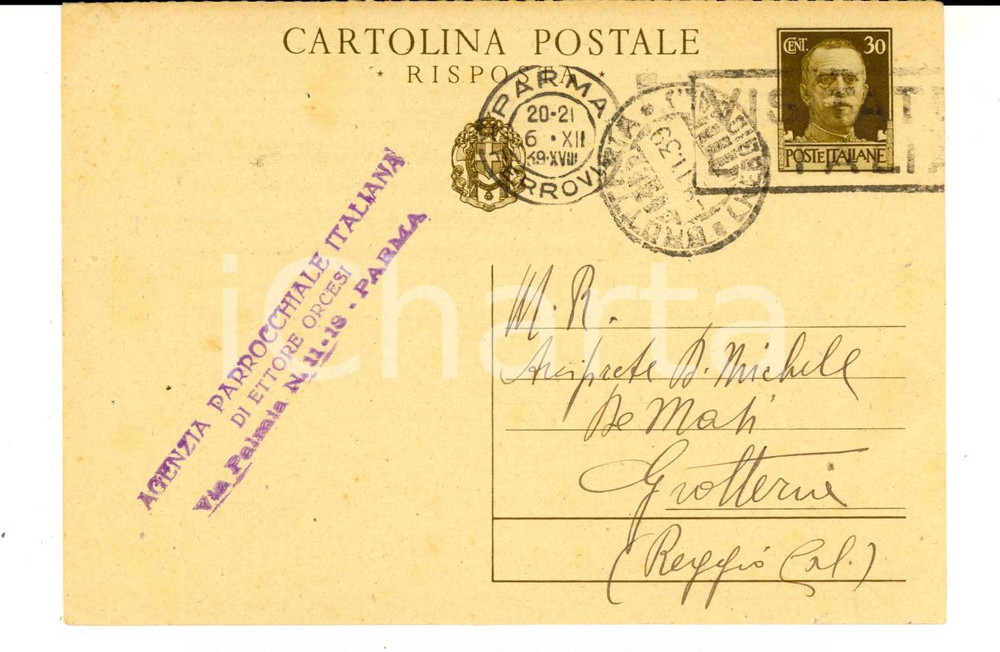 CARTOLINA POSTALE
* RISPOSTA *
CENT. 30
POSTE ITALIANE
PARMA
20-21
6 · XII
39·XVIII
FERROVIA
VISITATE
ITALIA
GROTTERIA
AGENZIA PARROCCHIALE ITALIANA
DI ETTORE ORCESI
Via Palmia N. 11-18 - PARMA
iCharta
M. R.
Arciprete D. Michele
De Mati
Grotteria
(Reggio Cal.)